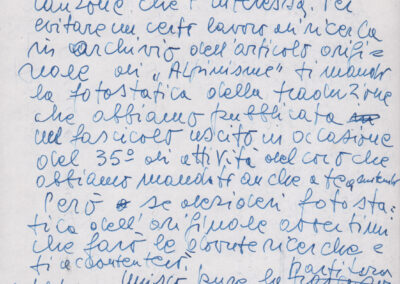 canzone che t'interessa. Per
evitare un certo lavoro di ricerca
in archivio dell'articolo origi=
nale di "Alpinisme" ti mando
la fotostatica della traduzione
che abbiamo pubblicata
nel fascicolo uscito in occasione
del 35º di attività del coro che
abbiamo mandato anche a te
Però se desideri fotosta=
tica dell'originale avvertimi
che farò le dovute ricerche e
ti accontenterò.
Unisco pure la